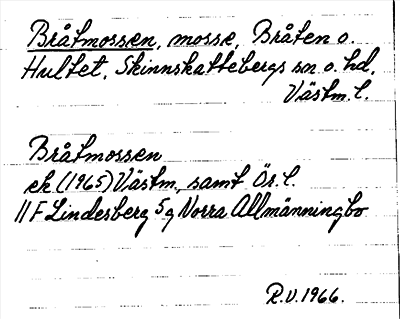 Bråtmossen, mosse, Bråten o.
Hultet, Skinnskattebergs sn o. hd,
Västm. l.
Bråtmossen
ek (1965) Västm., samt Ör. l.
11F Lindesberg 5g Norra Allmänningbo
R.V. 1966.